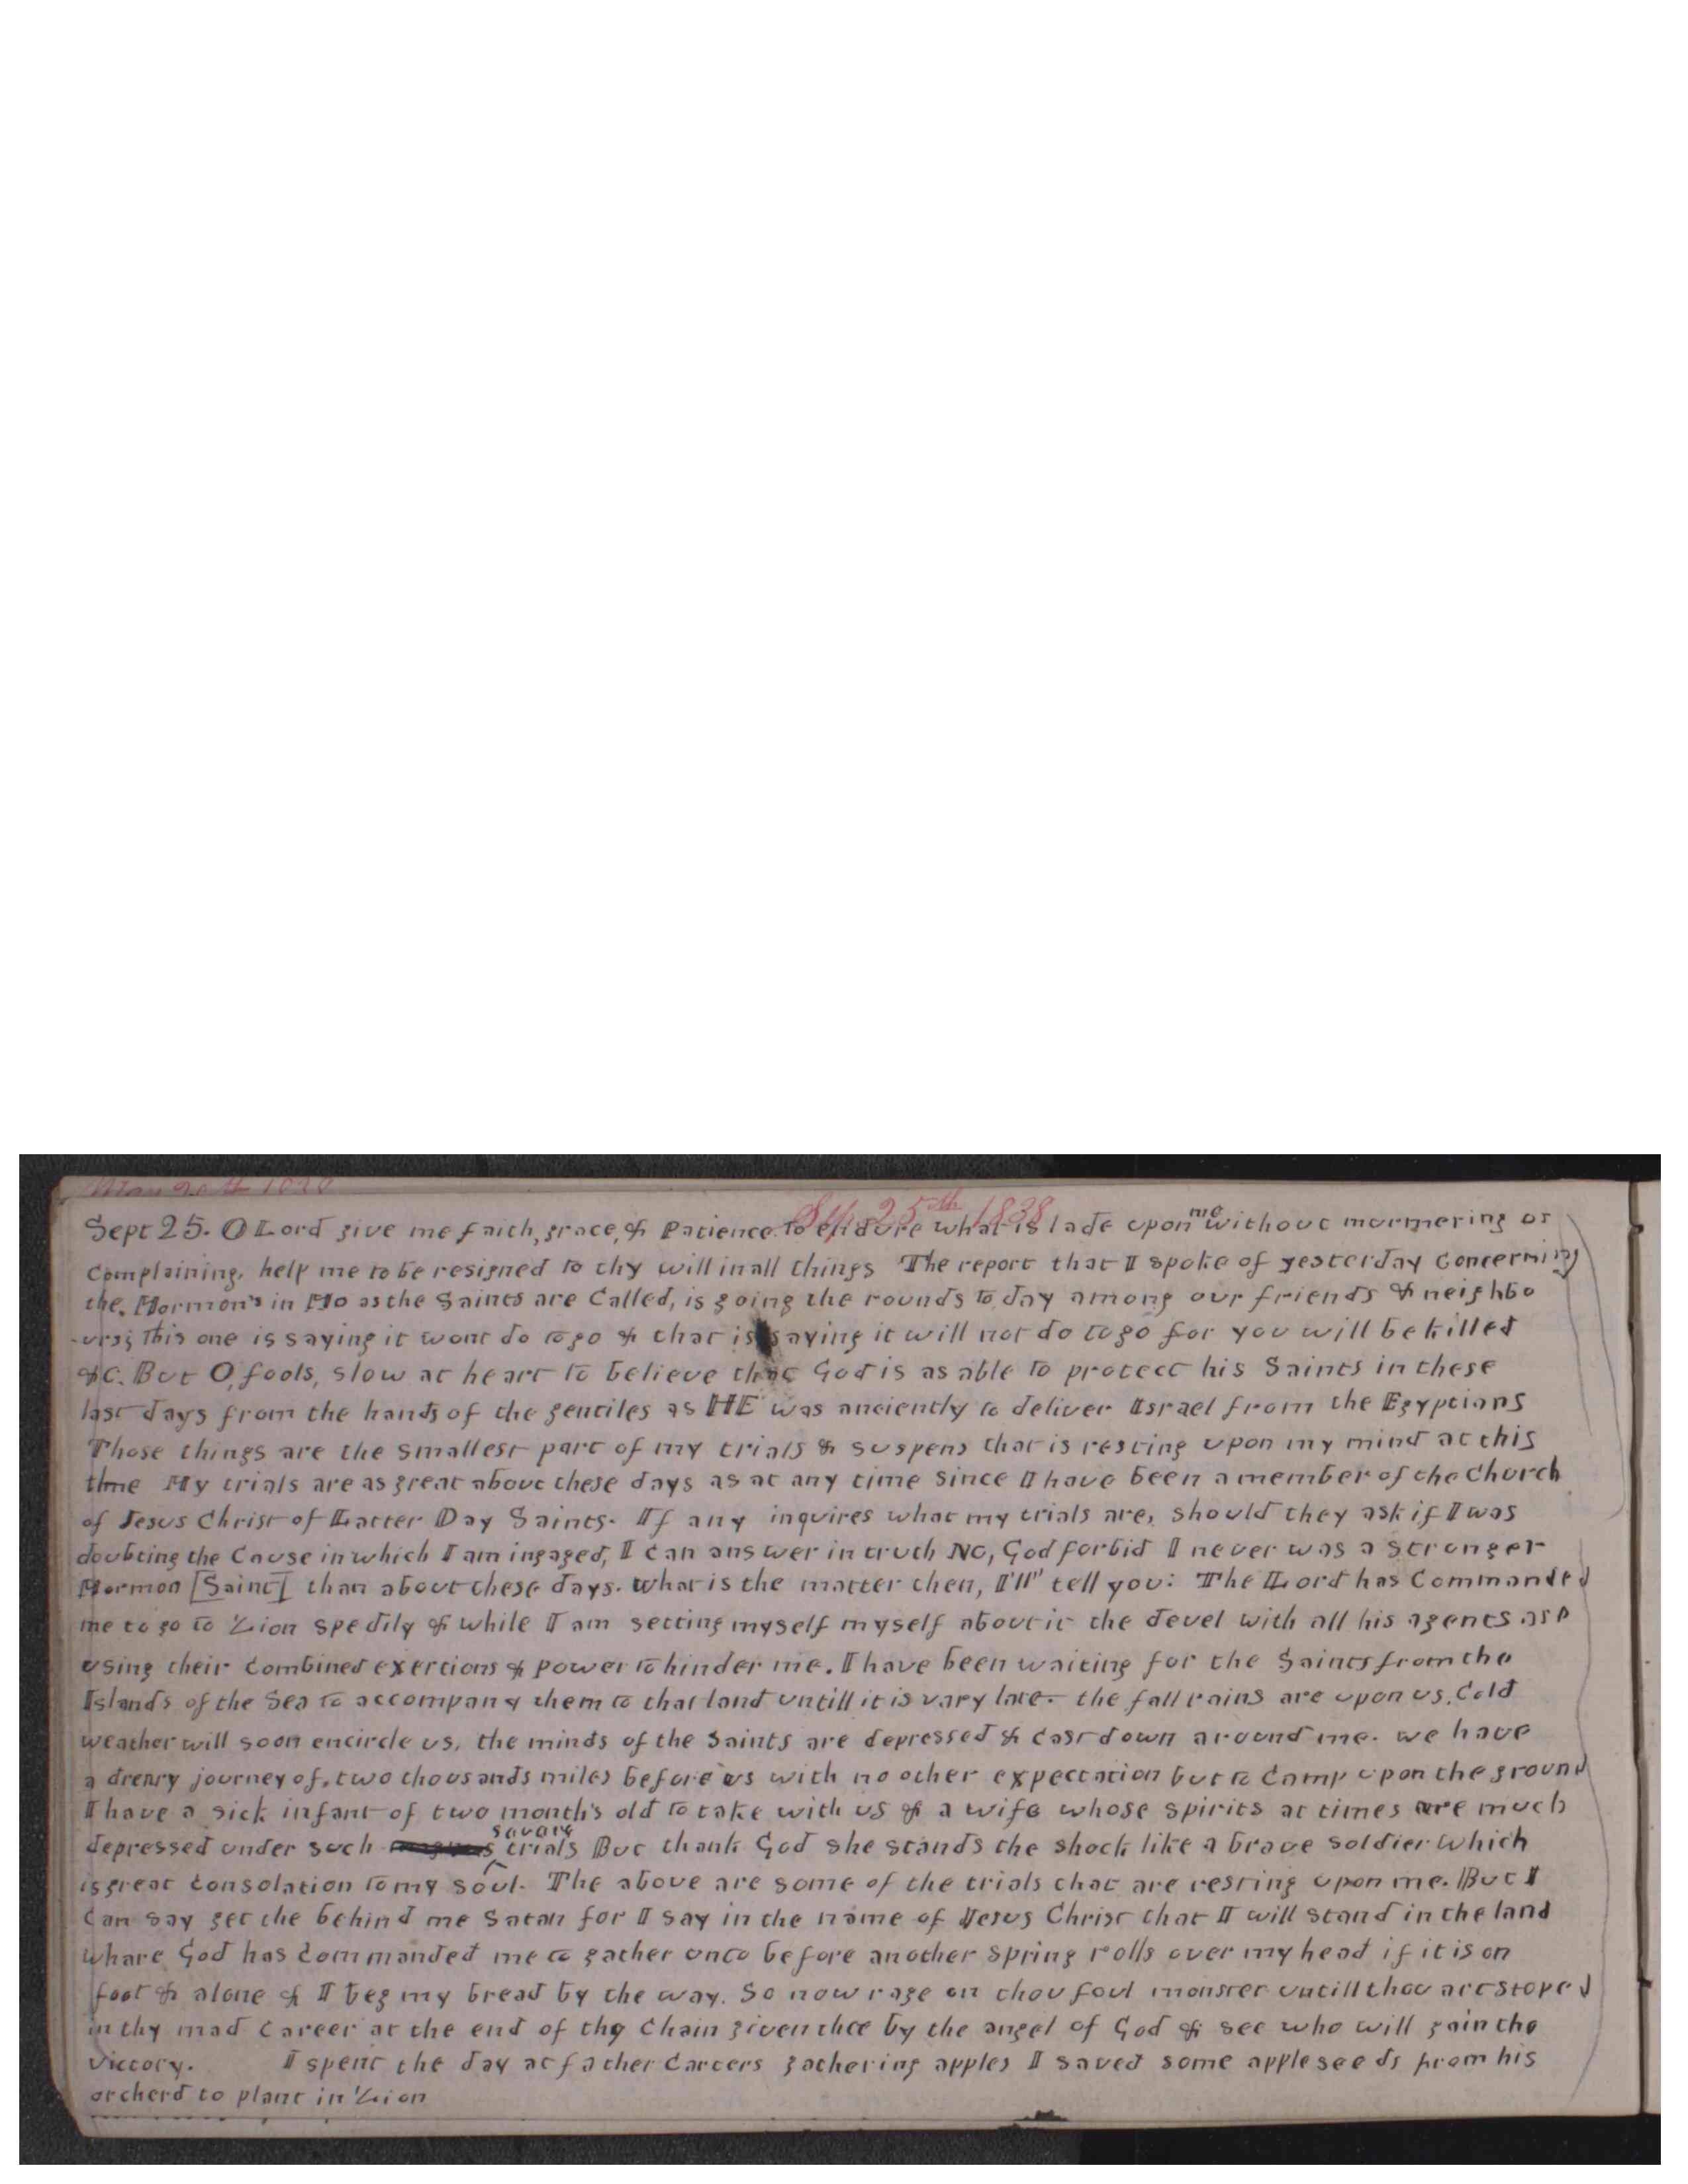 Sep 25th 1838
Sept 25. O Lord give me faith, grace, & Patience to endure what is lade upon me without murmering or
Complaining, help me to be resigned to thy will in all things The report that I spoke of yesterday Concerning
the. Mormon's in Mo as the Saints are Called, is going the rounds to day among our friends & neighbo
-urs; this one is saying it wont do to go & that is saying it will not do to go for you will be killed
&c. But O, fools, slow at heart to believe that God is as able to protect his Saints in these
last days from the hands of the gentiles as HE was anciently to deliver Israel from the Egyptians
Those things are the smallest part of my trials & suspens that is resting upon my mind at this
time My trials are as great about these days as at any time since I have been a member of the Church
of Jesus Christ of Latter Day Saints. If any inquires what my trials are, should they ask if I was
doubting the Cause in which I am ingaged, I can answer in truth NO, God forbid I never was a stronger
Mormon [Saint] than about these days. what is the matter then, I'll" tell you: The Lord has Commanded
me to go to Zion spedily & while I am setting myself myself about it the devel with all his agents are
using their combined exertions & power to hinder me. I have been waiting for the Saints from the
Islands of the Sea to accompany them to that land untill it is vary late. the fall rains are upon us. Cold
weather will soon encircle us, the minds of the Saints are depressed & cast down around me. we have
a dreary journey of, two thousands miles before us with no other expectation but to Camp upon the ground
I have a sick infant of two month's old to take with us & a wife whose spirits at times are much
depressed under such savare trials But thank God she stands the shock like a brave soldier which
is great consolation to my soul. The above are some of the trials that are resting upon me. But I
Can say get the behind me Satan for I say in the name of Jesus Christ that I will stand in the land
whare God has commanded me to gather unto before another spring rolls over my head if it is on
foot & alone & I beg my bread by the way. So now rage on thou foul monster untill thou art stoped
in thy mad career at the end of thy Chain given thee by the angel of God & see who will gain the
victory. I spent the day at father Carters gathering apples I saved some apple seeds from his
orcherd to plant in Zion